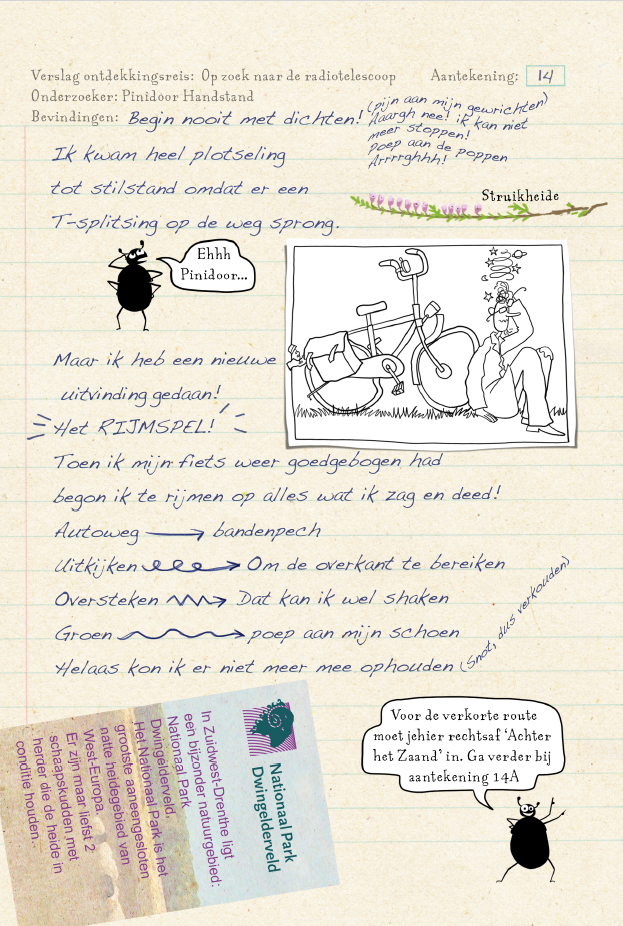 Verslag ontdekkingsreis: Op zoek naar de radiotelescoop
Aantekening: 14
Onderzoeker: Pinidoor Handstand
Bevindingen: Begin nooit met dichten!
(pijn aan mijn gewrichten)
Aaargh nee! ik kan niet
meer stoppen!
poep aan de poppen
Arrrrghhh!
Ik kwam heel plotseling
tot stilstand omdat er een
T-splitsing op de weg sprong.
Struikheide
Ehhh
Pinidoor...
Maar ik heb een nieuwe
uitvinding gedaan!
Het RIJMSPEL!
Toen ik mijn fiets weer goedgebogen had
begon ik te rijmen op alles wat ik zag en deed!
Autoweg bandenpech
Uitkijken Om de overkant te bereiken
Oversteken Dat kan ik wel shaken
Groen poep aan mijn schoen
Helaas kon ik er niet meer mee ophouden (Snot, dus verkouden)
Nationaal Park
Dwingelderveld
In Zuidwest-Drenthe ligt
een bijzonder natuurgebied:
Nationaal Park
Dwingelderveld.
Het Nationaal Park is het
grootste aaneengesloten
natte heidegebied van
West-Europa.
Er zijn maar liefst 2
schaapskudden met
herder die de heide in
conditie houden..
Voor de verkorte route
moet jehier rechtsaf ‘Achter
het Zaand’ in. Ga verder bij
aantekening 14A